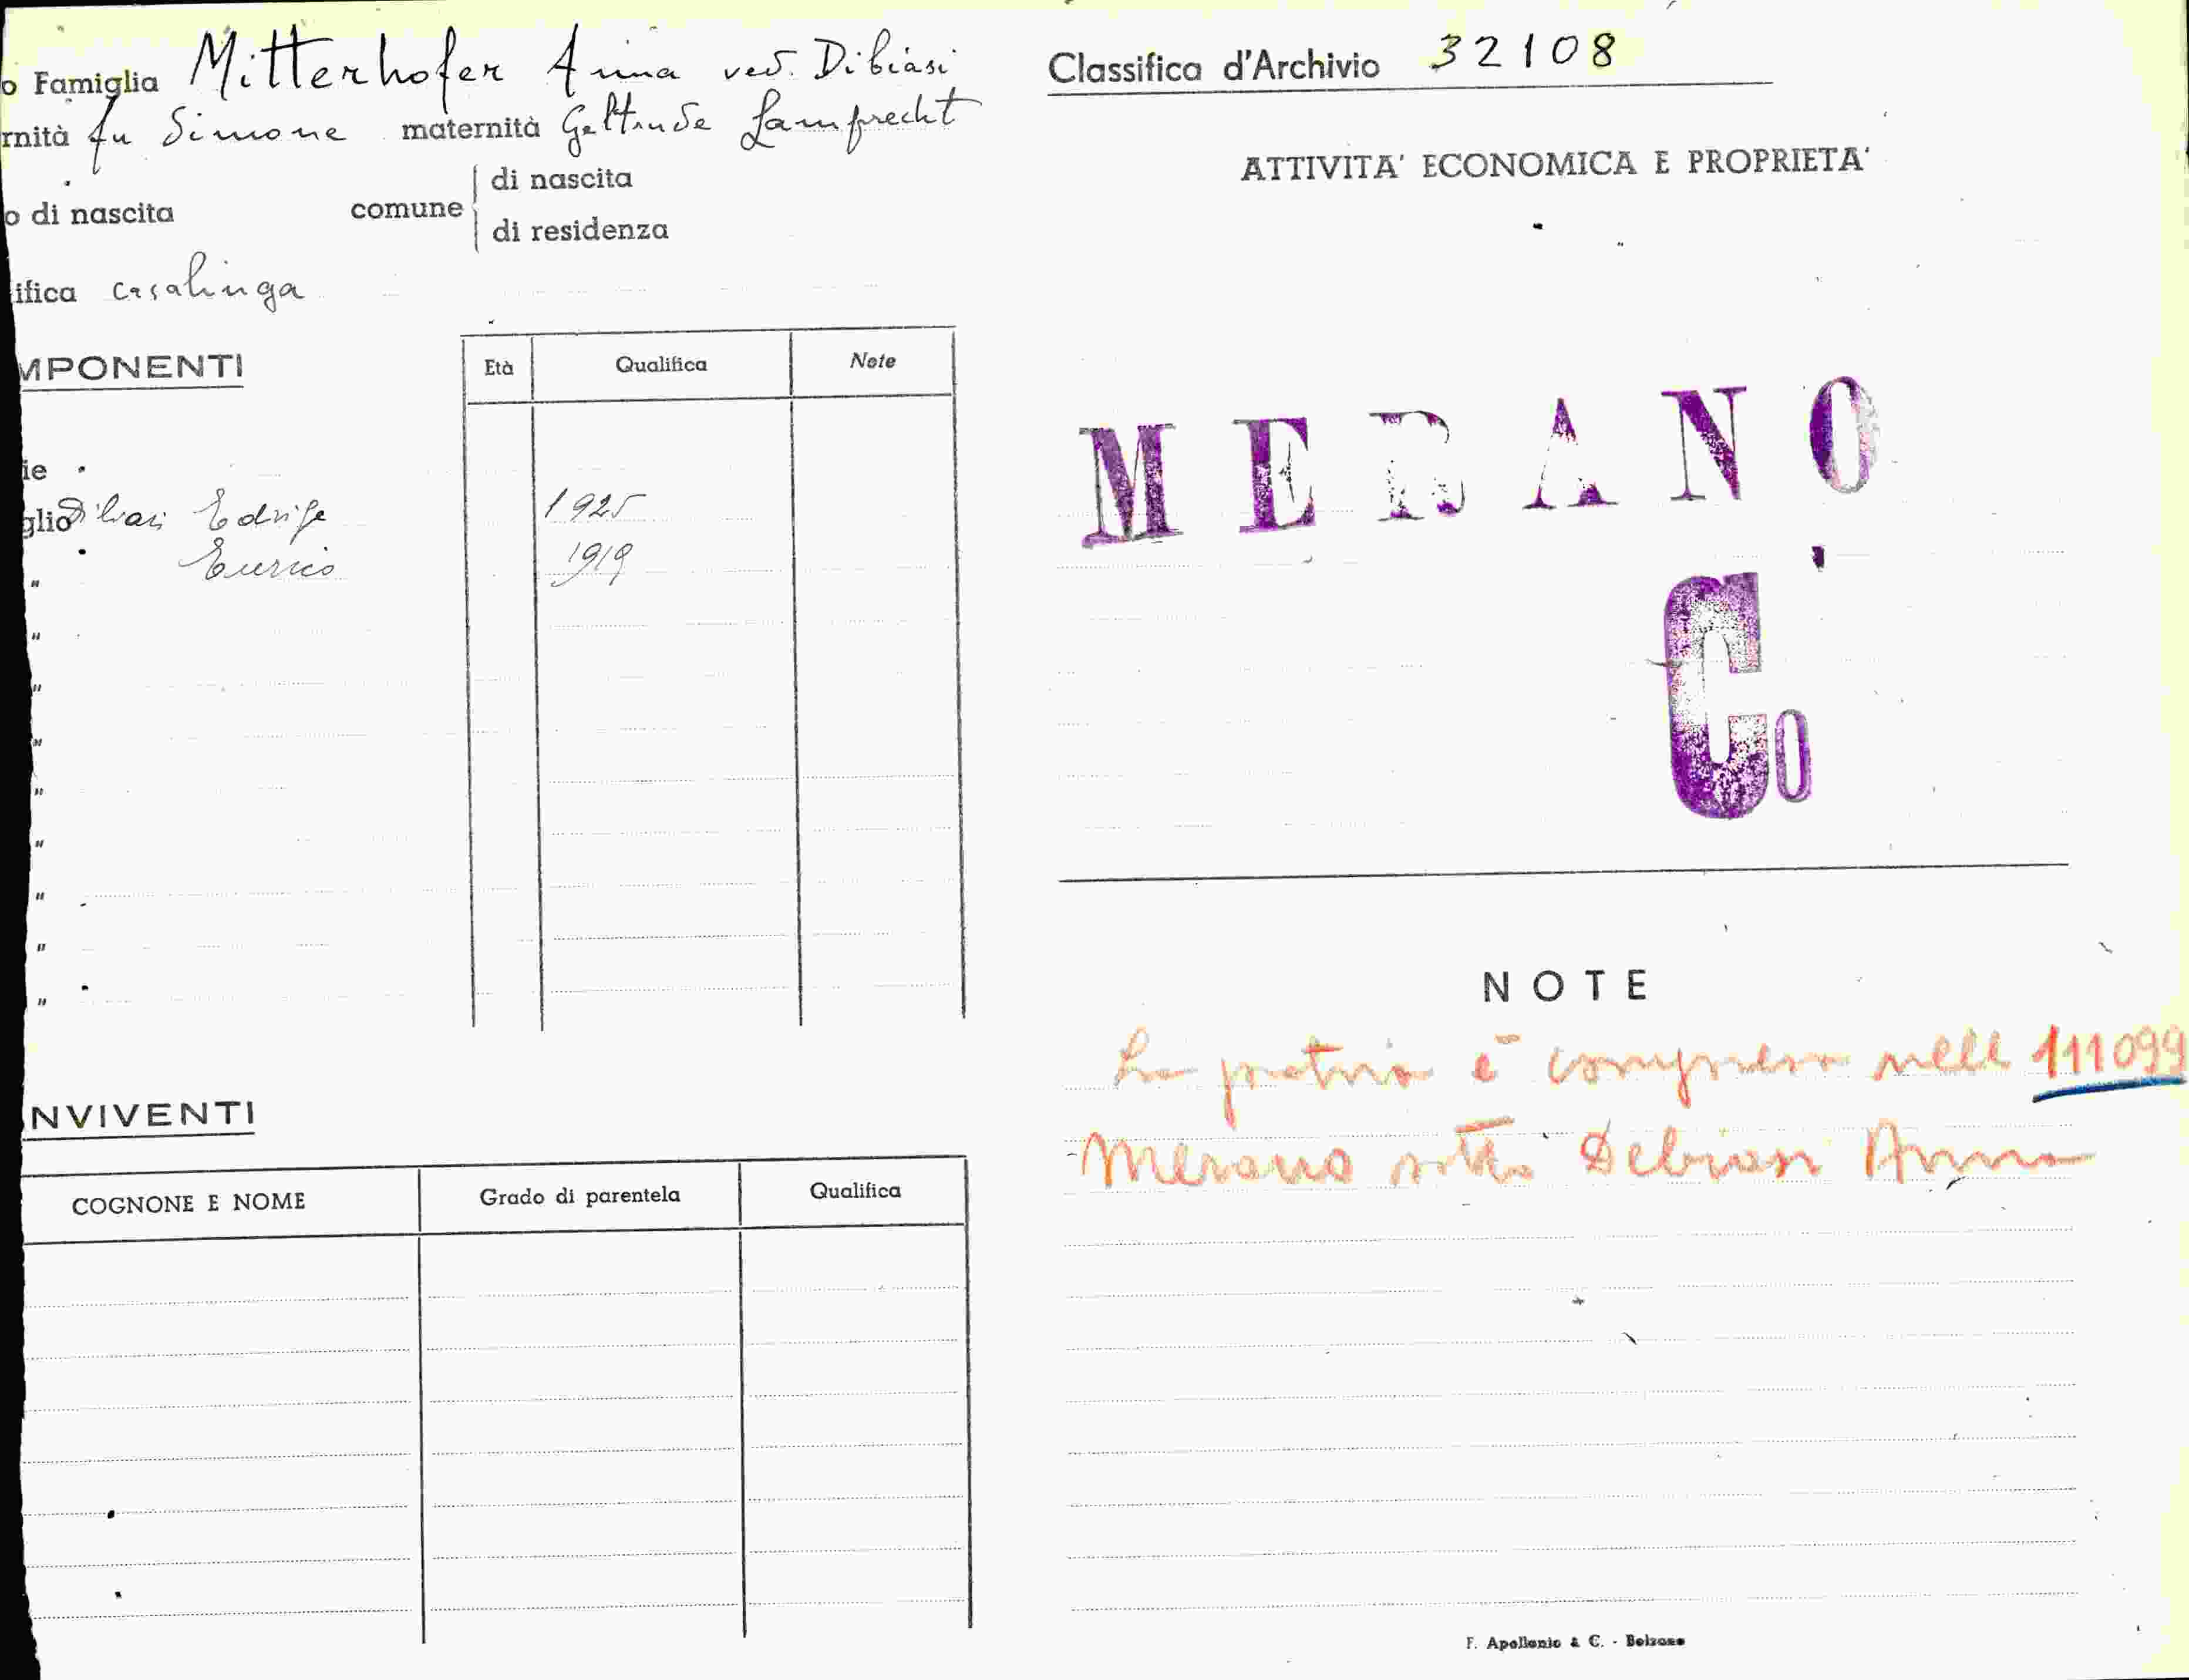 o Famiglia Mitterhofer Anna ved. Dibiasi
rnità fu Simone maternità Geltrude Lamprecht
o di nascita comune di nascita
di residenza
ifica casalinga
MPONENTI Età Qualifica Note
ie
glio Dibiasi Edvige 1925
" Enrico 1919
"
"
"
"
"
"
"
"
NVIVENTI
COGNONE E NOME Grado di parentela Qualifica
Classifica d'Archivio 32108
ATTIVITA' ECONOMICA E PROPRIETA'
MERANO
Co
NOTE
La pratica è compresa nell 111099
Merano sotto Debiasi Anna
F. Apollonio & C. - Bolzano